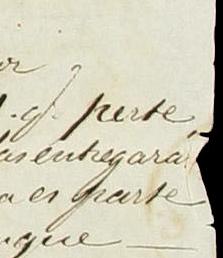 or
q. perte
as entregara
a es parte
nque